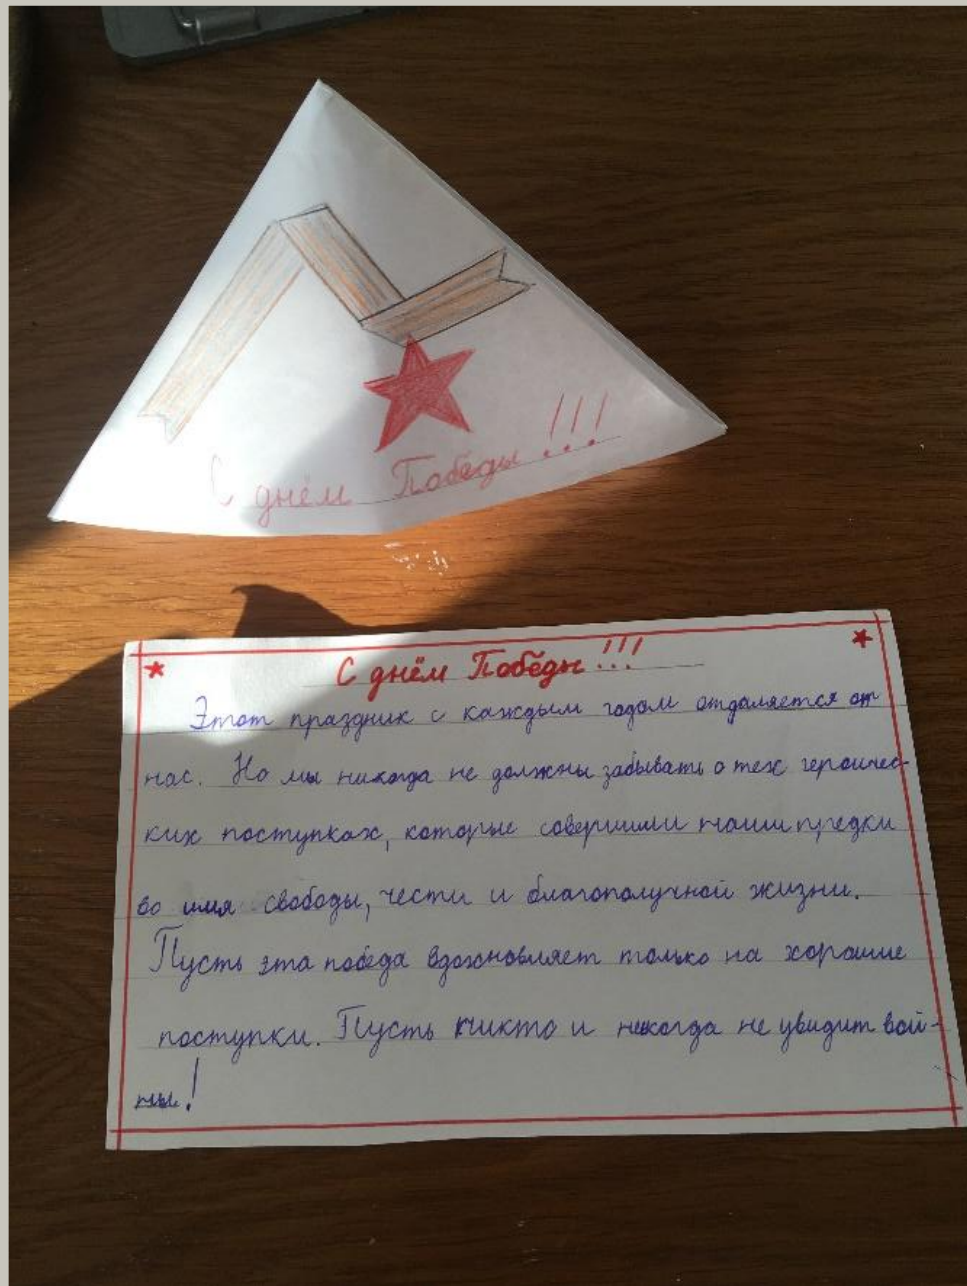 С днём Победы!!!
С днём Победы!!!
Этот праздник с каждым годом отдаляется от
нас. Но мы никогда не должны забывать о тех героичес-
ких поступках, которые совершили наши предки
во имя свободы, чести и благополучной жизни.
Пусть эта победа вдохновляет только на хорошие
поступки. Пусть никто и никогда не увидит вой-
ны!